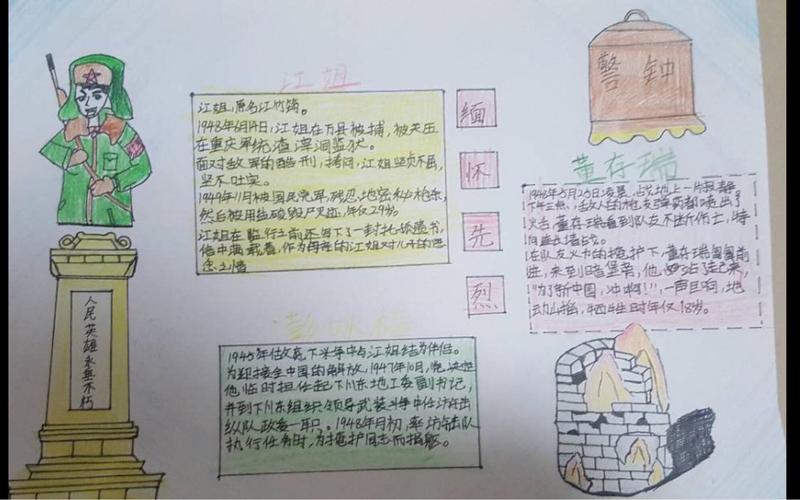 江姐
江姐,原名江竹筠。
1948年6月14日,江姐在万县被捕,被关压
在重庆军统渣滓洞监狱。
面对敌军的酷刑,拷问,江姐坚贞不屈,
坚不吐实。
1949年11月被国民党军残忍地密秘枪杀,
然后被用盐酸毁尸灭迹,年仅29岁。
江姐在临行之前还写下了一封托孤遗书,
信中满载着,作为母亲的江姐对儿子的思
念之情
缅
怀
先
烈
警钟
董存瑞
1948年5月25日凌晨,
火舌 董存瑞看到队友不断伤亡,
在队友火力的掩护下,董存瑞匍匐前
进,来到暗堡旁,他
"为了新中国,冲啊!",一声巨响,地
动山摇,牺牲时年仅18岁。
彭咏梧
1945年 下斗争中与江姐结为伴侣。
为迎接全中国的解放,1947年10月,
他临时担任起下川东地工委副书记,
并到下川东组织领导武装斗争中任游击
纵队政委一职。1948年月初,率游击队
执行任务时,为掩护同志而
人民英雄永垂不朽